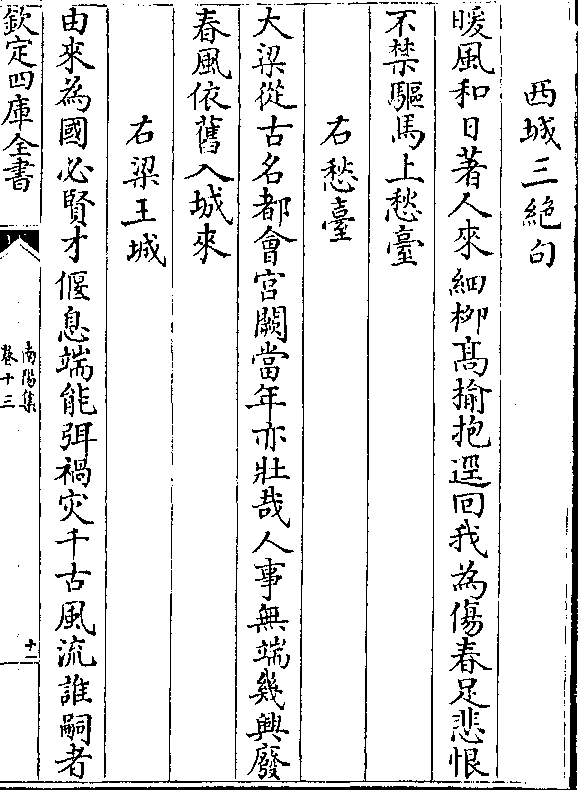 西城三絶句
暖風和日著人來細栁髙揄抱逕回我為傷春足悲恨
不禁驅馬上愁臺
右愁臺
大梁從古名都會宫闕當年亦壯哉人事無端幾興廢
春風依舊入城來
右梁王城
由來為國必賢才偃息端能弭禍灾千古風流誰嗣者
欽定四庫全書
南陽集
卷十三
十一